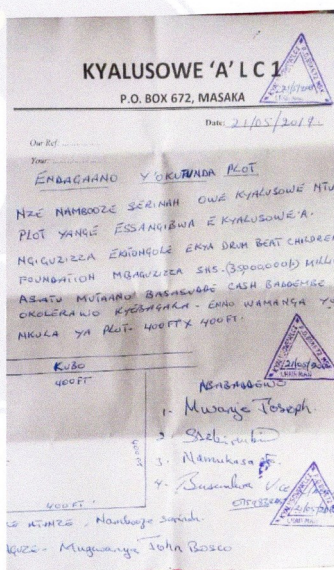 KYALUSOWE 'A' L C 1
P.O. BOX 672, MASAKA
Date: 21/05/2019.
Our Ref
Your
ENDAGAANO Y'OKUTUNDA PLOT
NZE NAMBOOZE SERINAH OWE KYALUSOWE
PLOT YANGE ESSANGIBWA E KYALUSOWE 'A.
NGIGUZIZZA EKITONGOLE EKYA DRUM BEAT CHILDREN
FOUNDATION MBAGUZIZZA SHS.
ASATU MUTAANO BASASUDDE CASH BADDEMBE
OKOLERAWO KYEBAGARA. ENNO WAMANGA
NKULA YA PLOT. 400FT X 400FT.
KUBO
400FT
400FT
400FT
ABABADDEWO
1- Mwanje Joseph.
2
3. Namukasa
4-
. Nambooze Serinah.
Mugwanya John Bosco